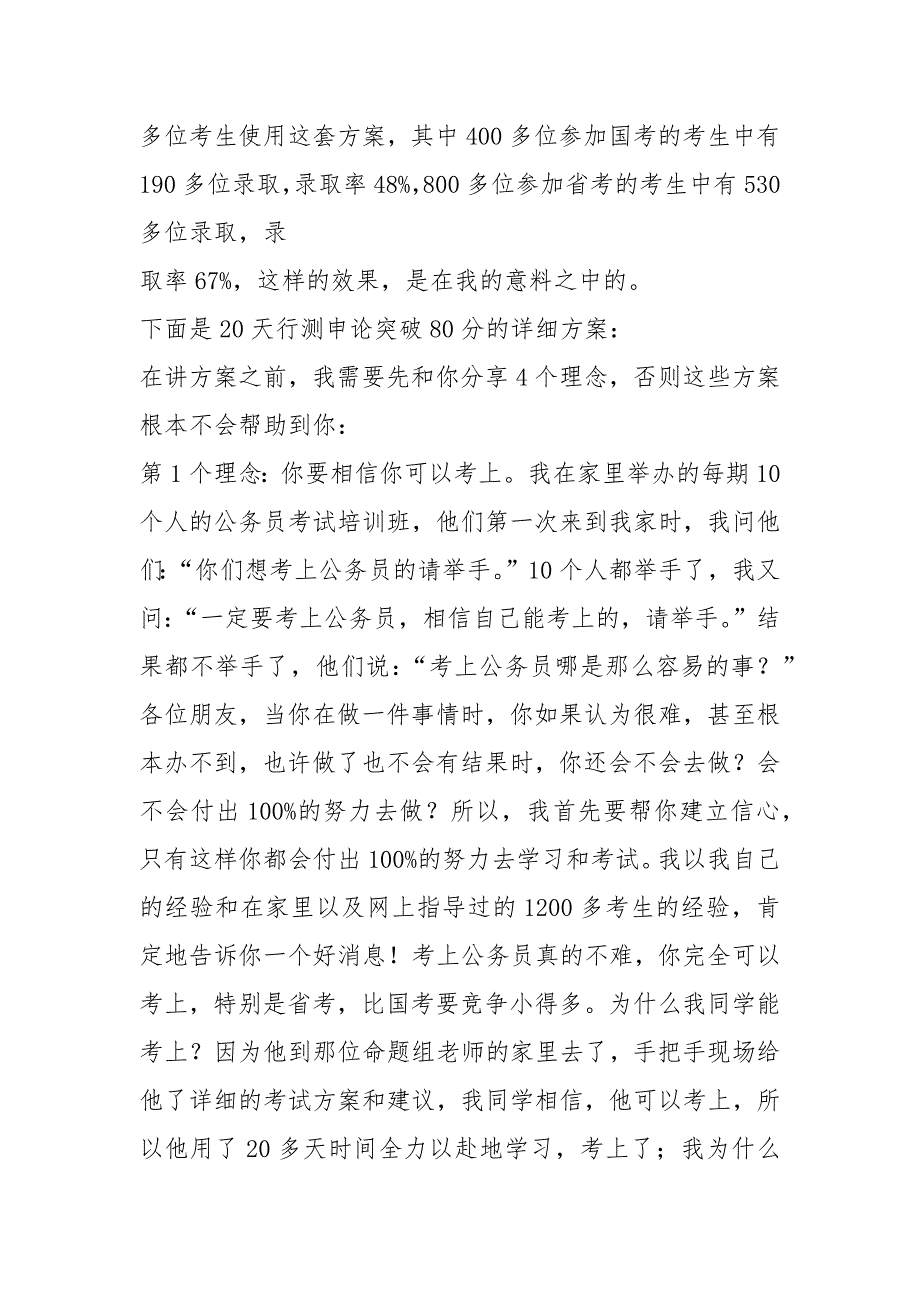 多位考生使用这套方案，其中 400 多位参加国考的考生中有
190 多位录取，录取率 48%，800 多位参加省考的考生中有 530
多位录取，录
取率 67%，这样的效果，是在我的意料之中的。
下面是 20 天行测申论突破 80 分的详细方案：
在讲方案之前，我需要先和你分享 4 个理念，否则这些方案
根本不会帮助到你：
第 1 个理念：你要相信你可以考上。我在家里举办的每期 10
个人的公务员考试培训班，他们第一次来到我家时，我问他
们：“你们想考上公务员的请举手。”10 个人都举手了，我又
问：“一定要考上公务员，相信自己能考上的，请举手。”结
果都不举手了，他们说：“考上公务员哪是那么容易的事？”
各位朋友，当你在做一件事情时，你如果认为很难，甚至根
本办不到，也许做了也不会有结果时，你还会不会去做？会
不会付出 100%的努力去做？所以，我首先要帮你建立信心，
只有这样你都会付出 100%的努力去学习和考试。我以我自己
的经验和在家里以及网上指导过的 1200 多考生的经验，肯
定地告诉你一个好消息！考上公务员真的不难，你完全可以
考上，特别是省考，比国考要竞争小得多。为什么我同学能
考上？因为他到那位命题组老师的家里去了，手把手现场给
他了详细的考试方案和建议，我同学相信，他可以考上，所
以他用了 20 多天时间全力以赴地学习，考上了；我为什么